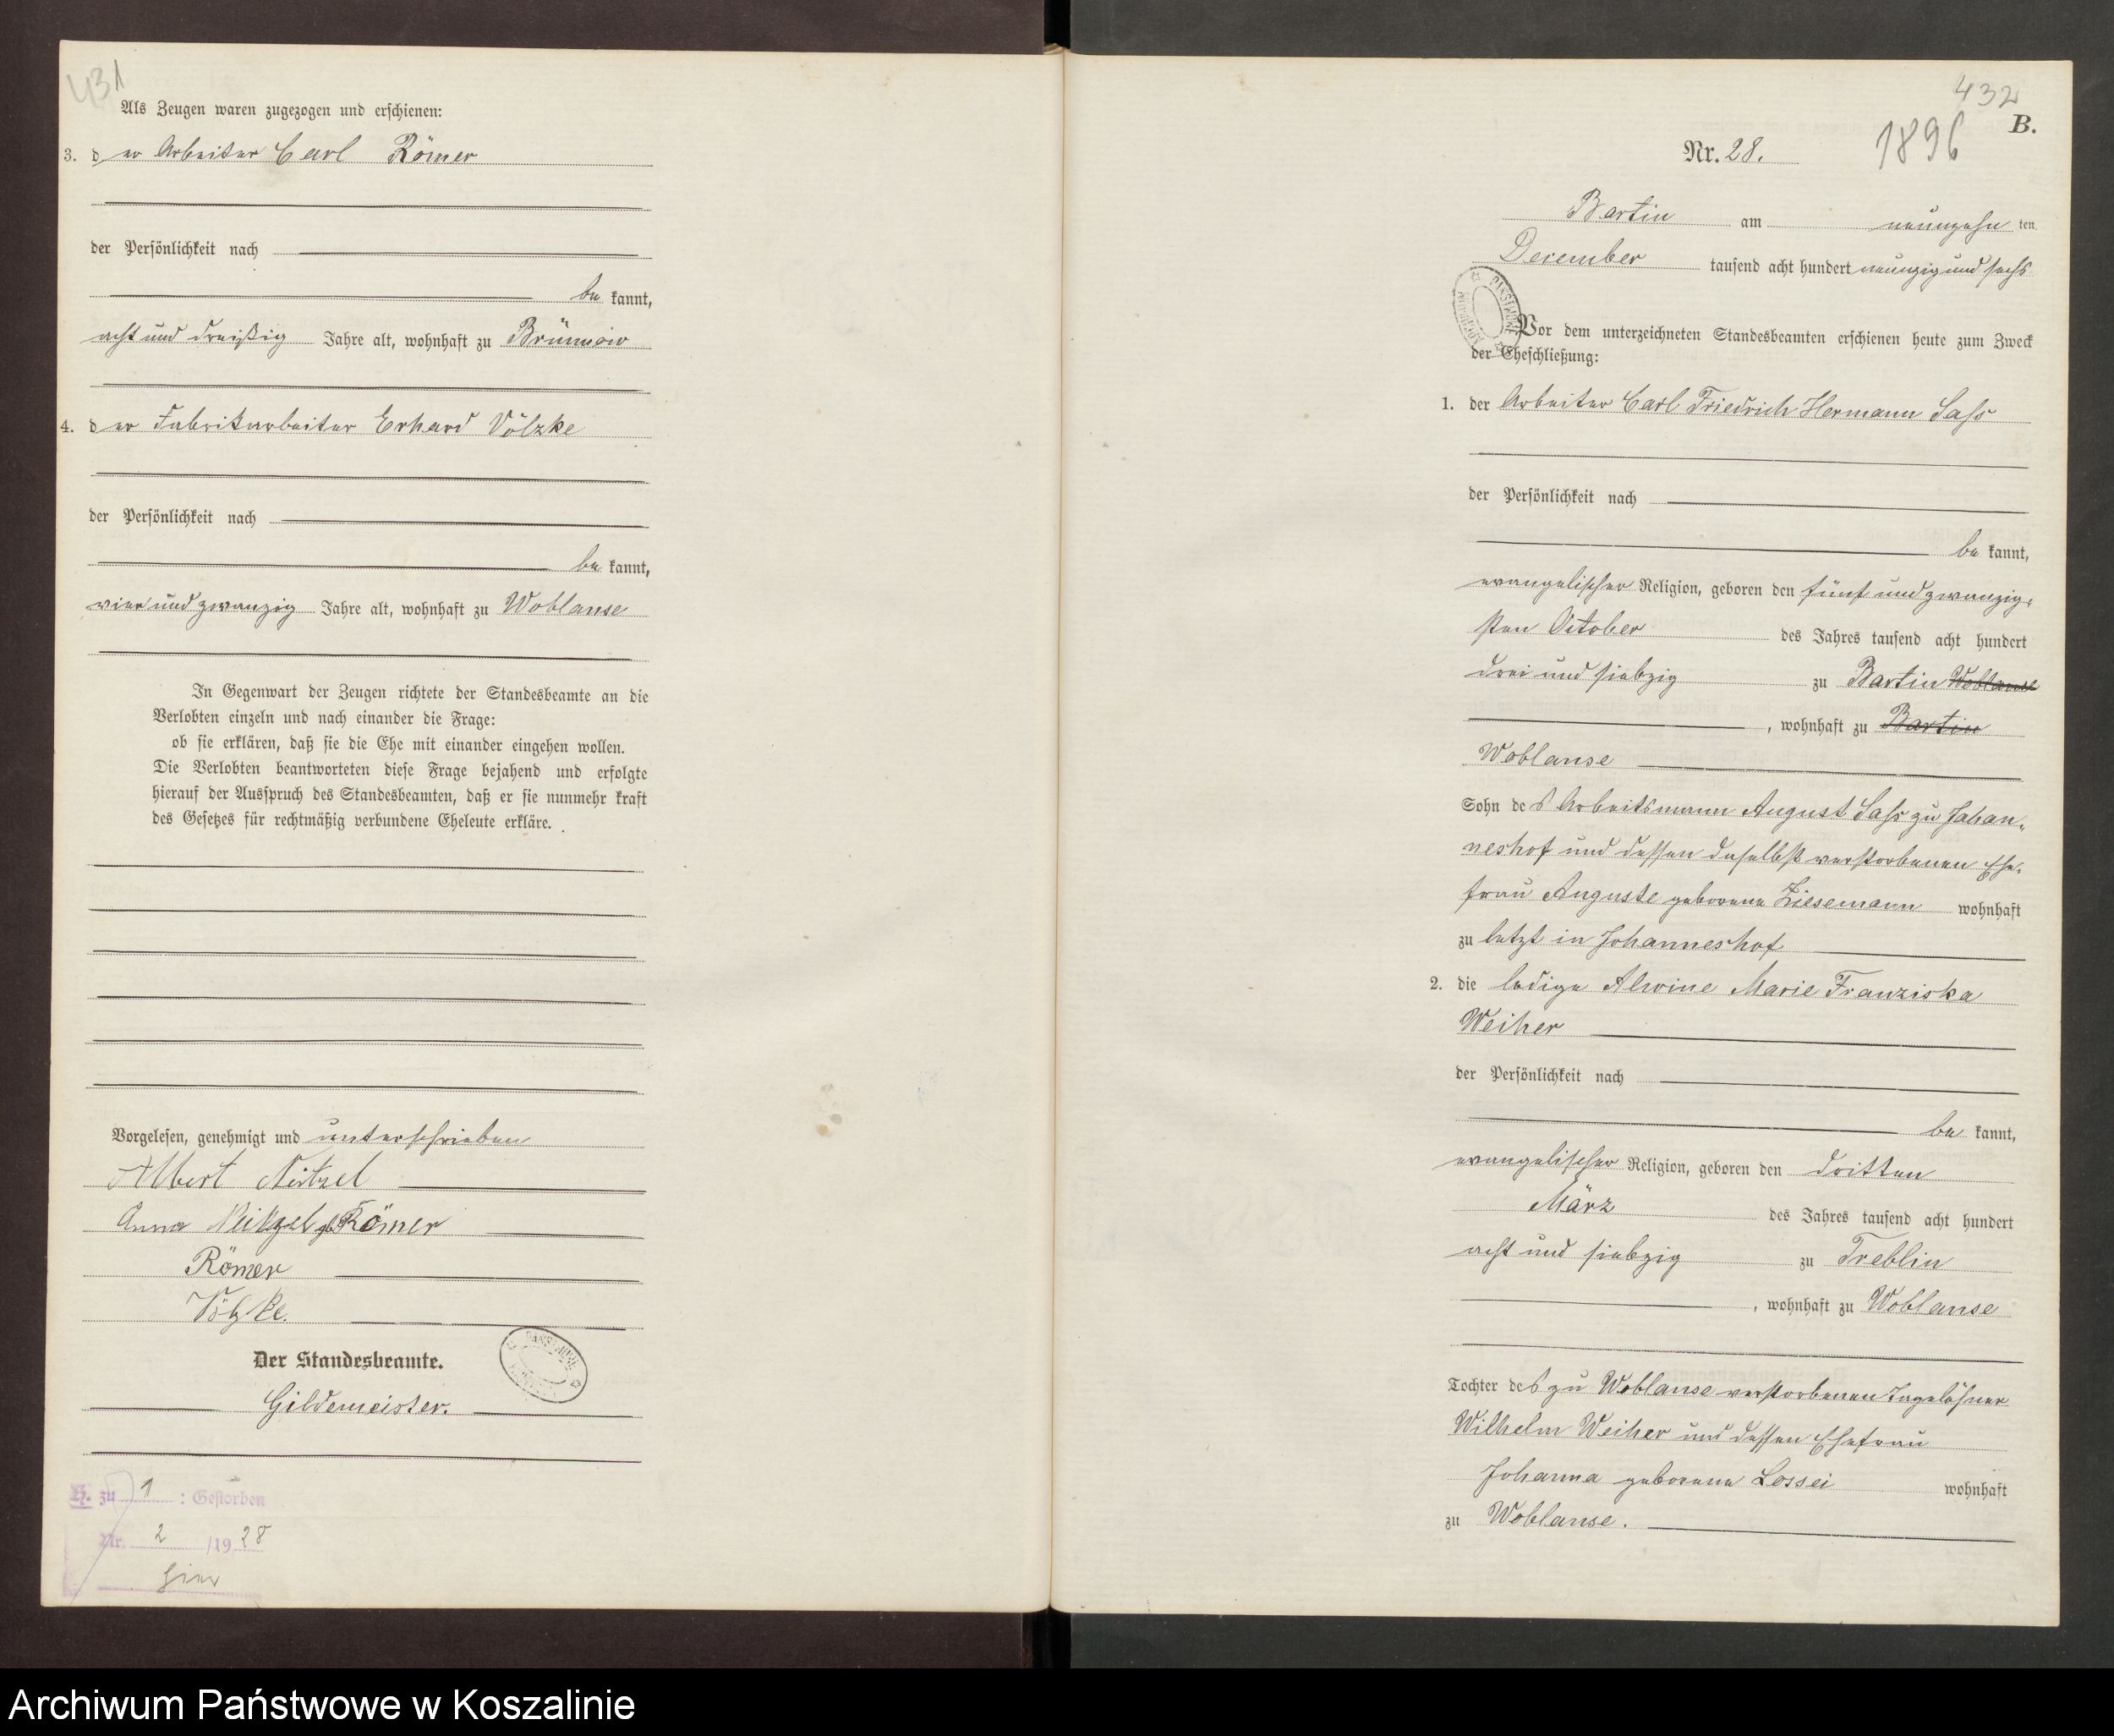 431
Als Zeugen waren zugezogen und erschienen:
3. der Arbeiter Carl Römer
der Persönlichkeit nach
be kannt,
acht und dreißig Jahre alt, wohnhaft zu Brünnow
4. der Fabrikarbeiter Erhard Völzke
der Persönlichkeit nach
be kannt,
vier und zwanzig Jahre alt, wohnhaft zu Woblanse
In Gegenwart der Zeugen richtete der Standesbeamte an die
Verlobten einzeln und nach einander die Frage:
ob sie erklären, daß sie die Ehe mit einander eingehen wollen.
Die Verlobten beantworteten diese Frage bejahend und erfolgte
hierauf der Ausspruch des Standesbeamten, daß er sie nunmehr kraft
des Gesetzes für rechtmäßig verbundene Eheleute erkläre.
Vorgelesen, genehmigt und unterschrieben
Albert Neitzel
Anna Neitzel gb Römer
Römer
Völzke.
Der Standesbeamte.
Gildemeister.
H. zu 1 : Gestorben
Nr. 2 /19 28
432
B.
Nr. 28. 1896
Bartin am neunzehn ten
December tausend acht hundert neunzig und sechs
Vor dem unterzeichneten Standesbeamten erschienen heute zum Zweck
der Eheschließung:
1. der Arbeiter Carl Friedrich Hermann Sass
der Persönlichkeit nach
be kannt,
evangelischer Religion, geboren den fünf und zwanzig-
sten October des Jahres tausend acht hundert
drei und siebzig zu Bartin Woblanse
, wohnhaft zu Bartin
Woblanse
Sohn des Arbeitsmann August Sass zu Johan-
neshof und dessen daselbst verstorbenen Ehe-
frau Auguste geborene Ziesemann wohnhaft
zu letzt in Johanneshof
2. die ledige Alwine Marie Franziska
Weiher
der Persönlichkeit nach
be kannt,
evangelischer Religion, geboren den dritten
März des Jahres tausend acht hundert
acht und siebzig zu Treblin
, wohnhaft zu Woblanse
Tochter des zu Woblanse verstorbenen Tagelöhner
Wilhelm Weiher und dessen Ehefrau
Johanna geborene Lossei wohnhaft
zu Woblanse.
Archiwum Państwowe w Koszalinie